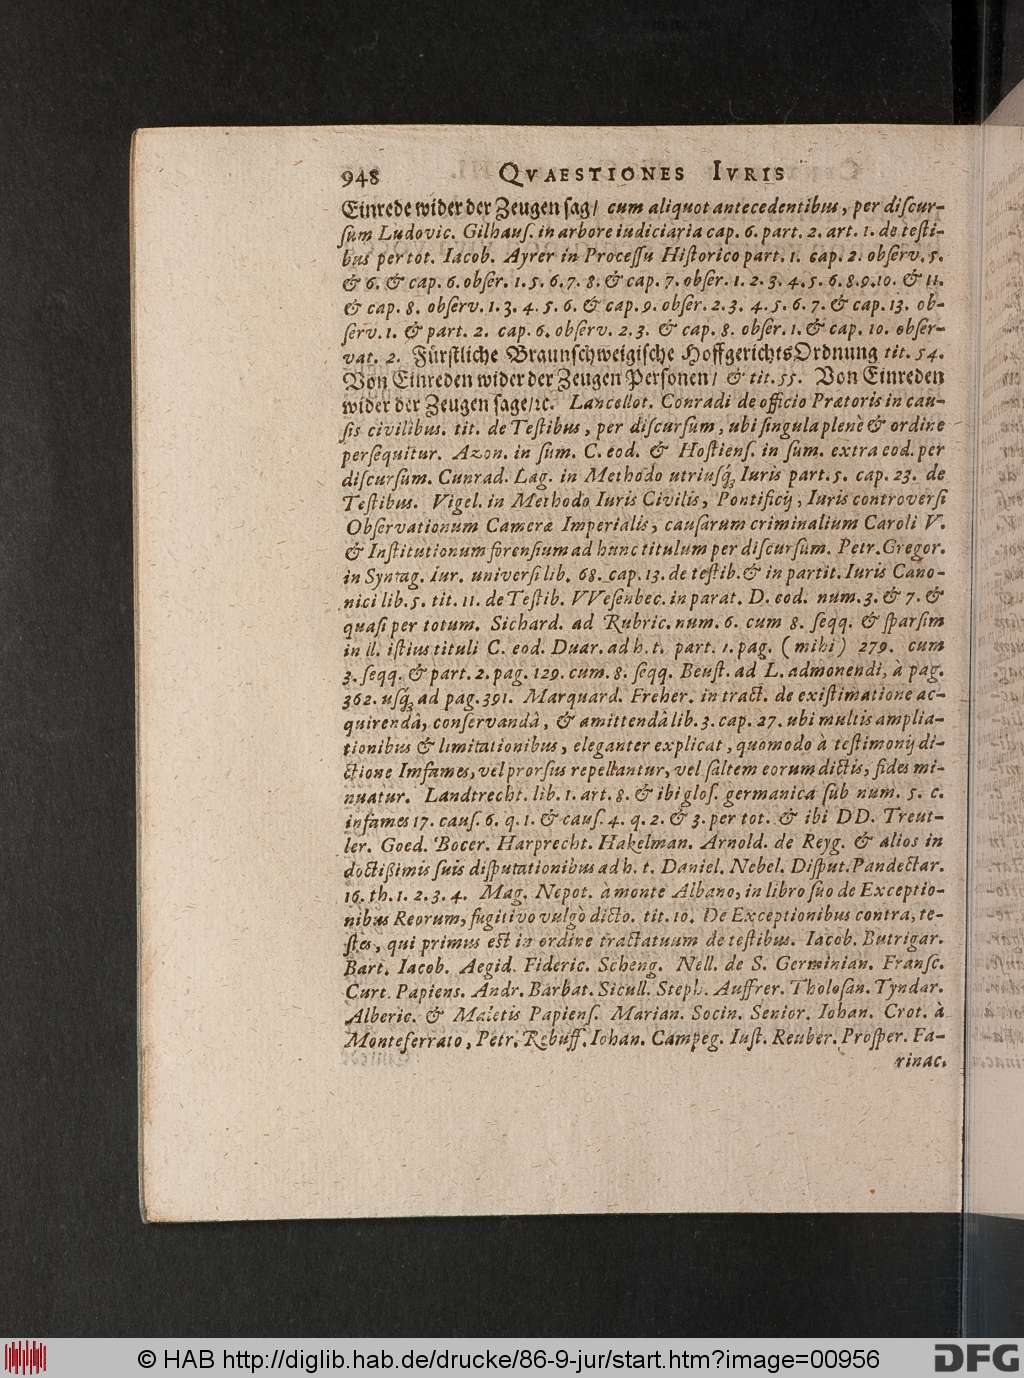 948 QVAESTIONES IVRIS
Einrede wider der Zeugen ſag/ cum aliquot antecedentibus, per diſcur-
ſum Ludovic. Gilhauſ. in arbore iudiciaria cap. 6. part. 2. art. 1. de teſti-
bus per tot. Iacob. Ayrer in Proceſſu Hiſtorico part. 1. cap. 2. obſerv. 5.
& 6. & cap. 6. obſer. 1. 5. 6. 7. 8. & cap. 7. obſer. 1. 2. 3. 4. 5. 6. 8. 9. 10. & 11.
& cap. 8. obſerv. 1. 3. 4. 5. 6. & cap. 9. obſer. 2. 3. 4. 5. 6. 7. & cap. 13. ob-
ſerv. 1. & part. 2. cap. 6. obſerv. 2. 3. & cap. 8. obſer. 1. & cap. 10. obſer-
vat. 2. Fürſtliche Braunſchweigiſche HoffgerichtsOrdnung tit. 54.
Von Einreden wider der Zeugen Perſonen/ & tit. 55. Von Einreden
wider der Zeugen ſage/ꝛc. Lancellot. Conradi de officio Prætoris in cau-
ſis civilibus. tit. de Teſtibus, per diſcurſum, ubi ſingula plenè & ordine
perſequitur. Azon. in ſum. C. eod. & Hoſtienſ. in ſum. extra eod. per
diſcurſum. Cunrad. Lag. in Methodo utriuſq́; Iuris part. 5. cap. 23. de
Teſtibus. Vigel. in Methodo Iuris Civilis, Pontificij, Iuris controverſi
Obſervationum Cameræ Imperialis, cauſarum criminalium Caroli V.
& Inſtitutionum forenſium ad hunc titulum per diſcurſum. Petr. Gregor.
in Syntag. Iur. univerſi lib. 68. cap. 13. de teſtib. & in partit. Iuris Cano-
nici lib. 5. tit. 11. de Teſtib. VVeſenbec. in parat. D. eod. num. 3. & 7. &
quaſi per totum. Sichard. ad Rubric. num. 6. cum 8. ſeqq. & ſparſim
in ll. iſtius tituli C. eod. Duar. ad h. t. part. 1. pag. (mihi) 279. cum
3. ſeqq. & part. 2. pag. 129. cum. 8. ſeqq. Beuſt. ad L. admonendi, à pag.
362. uſq́; ad pag. 391. Marquard. Freher. in tract. de exiſtimatione ac-
quirendâ, conſervandâ, & amittendâ lib. 3. cap. 27. ubi multis amplia-
tionibus & limitationibus, eleganter explicat, quomodo à teſtimonij di-
ctione Infames, vel prorſus repellantur, vel ſaltem eorum dictis, fides mi-
nuatur. Landtrecht. lib. 1. art. 8. & ibi gloſ. germanica ſub num. 5. c.
infames 17. cauſ. 6. q. 1. & cauſ. 4. q. 2. & 3. per tot. & ibi DD. Treut-
ler. Goed. Bocer. Harprecht. Hakelman. Arnold. de Reyg. & alios in
doctißimis ſuis diſputationibus ad h. t. Daniel. Nebel. Diſput. Pandectar.
16. th. 1. 2. 3. 4. Mag. Nepot. à monte Albano, in libro ſuo de Exceptio-
nibus Reorum, fugitivo vulgò dicto. tit. 10. De Exceptionibus contra, te-
ſtes, qui primus eſt in ordine tractatuum de teſtibus. Iacob. Butrigar.
Bart. Iacob. Aegid. Fideric. Scheng. Nell. de S. Germinian. Franſc.
Curt. Papiens. Andr. Barbat. Sicull. Steph. Auffrer. Tholoſan. Tyndar.
Alberic. & Maletis Papienſ. Marian. Socin. Senior. Iohan. Crot. à
Monteferrato, Petr. Rebuff. Iohan. Campeg. Iuſt. Reuber. Proſper. Fa-
rinac.
© HAB http://diglib.hab.de/drucke/86-9-jur/start.htm?image=00956
DFG